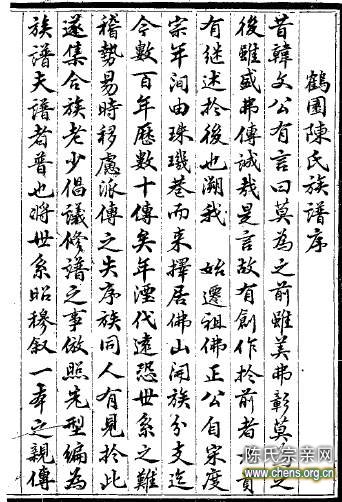 鶴園陳氏族譜序
昔韓文公有言曰莫為之前雖美弗彰莫之
後雖盛弗傳誠哉是言故有創作於前者貴
有継述於後也溯我 始遷祖佛正公自宋度
宗年间由珠璣巷而来擇居佛山開族分支迄
今數百年歷數十傳矣年湮代遠恐世系之難
稽勢易時移慮派傳之失序族同人有見於此
遂集合族老少倡議修譜之事倣照先型編為
族譜夫譜者普也將世系昭穆叙一本之親傳
陈氏宗亲网
www.chens.org.cn